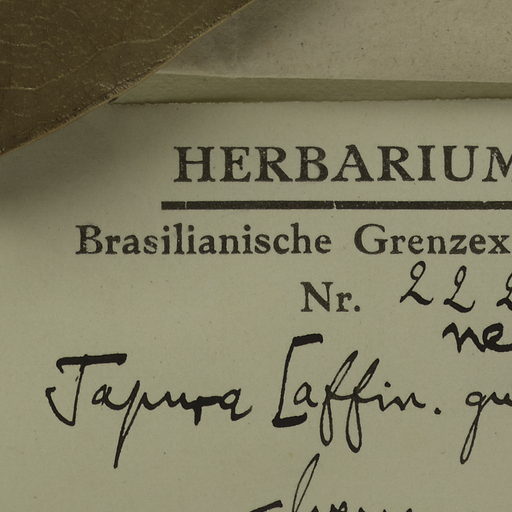 HERBARIUM
Brasilianische Grenzex
Nr. 222
ne
Tapura [affin. gu